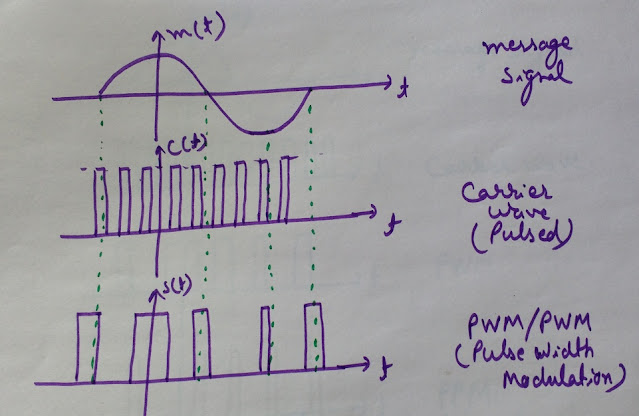 m(t)
message
signal
t
c(t)
Carrier
wave
(Pulsed)
t
s(t)
PWM/PWM
(Pulse width
Modulation)
t